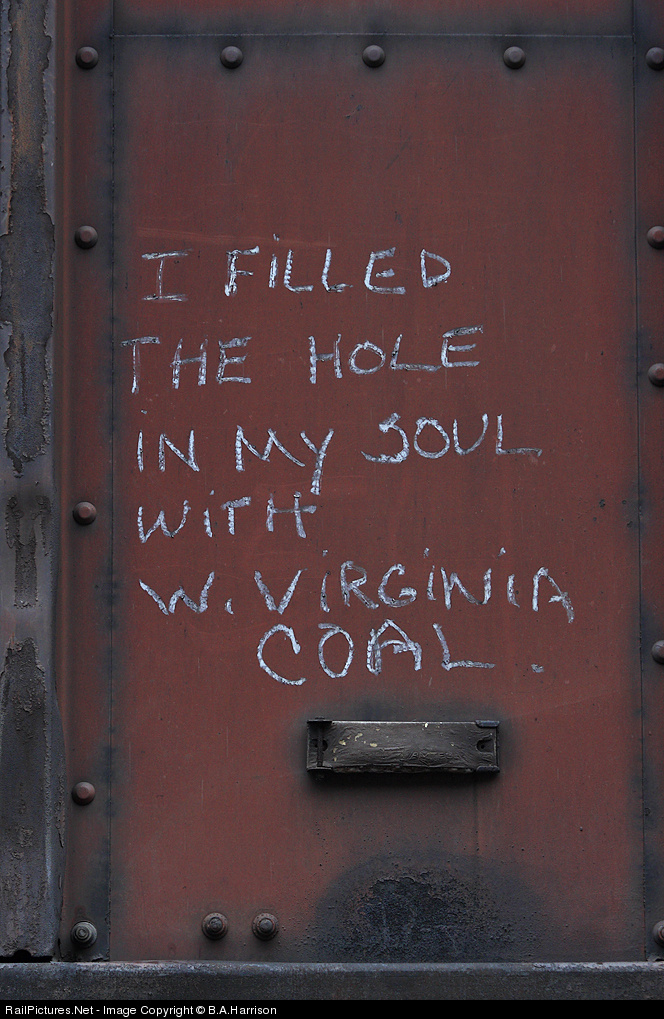 I FiLLED
THE HOLE
iN MY SOUL
WiTH
W. ViRGiNiA
COAL.
RailPictures.Net - Image Copyright © B.A.Harrison